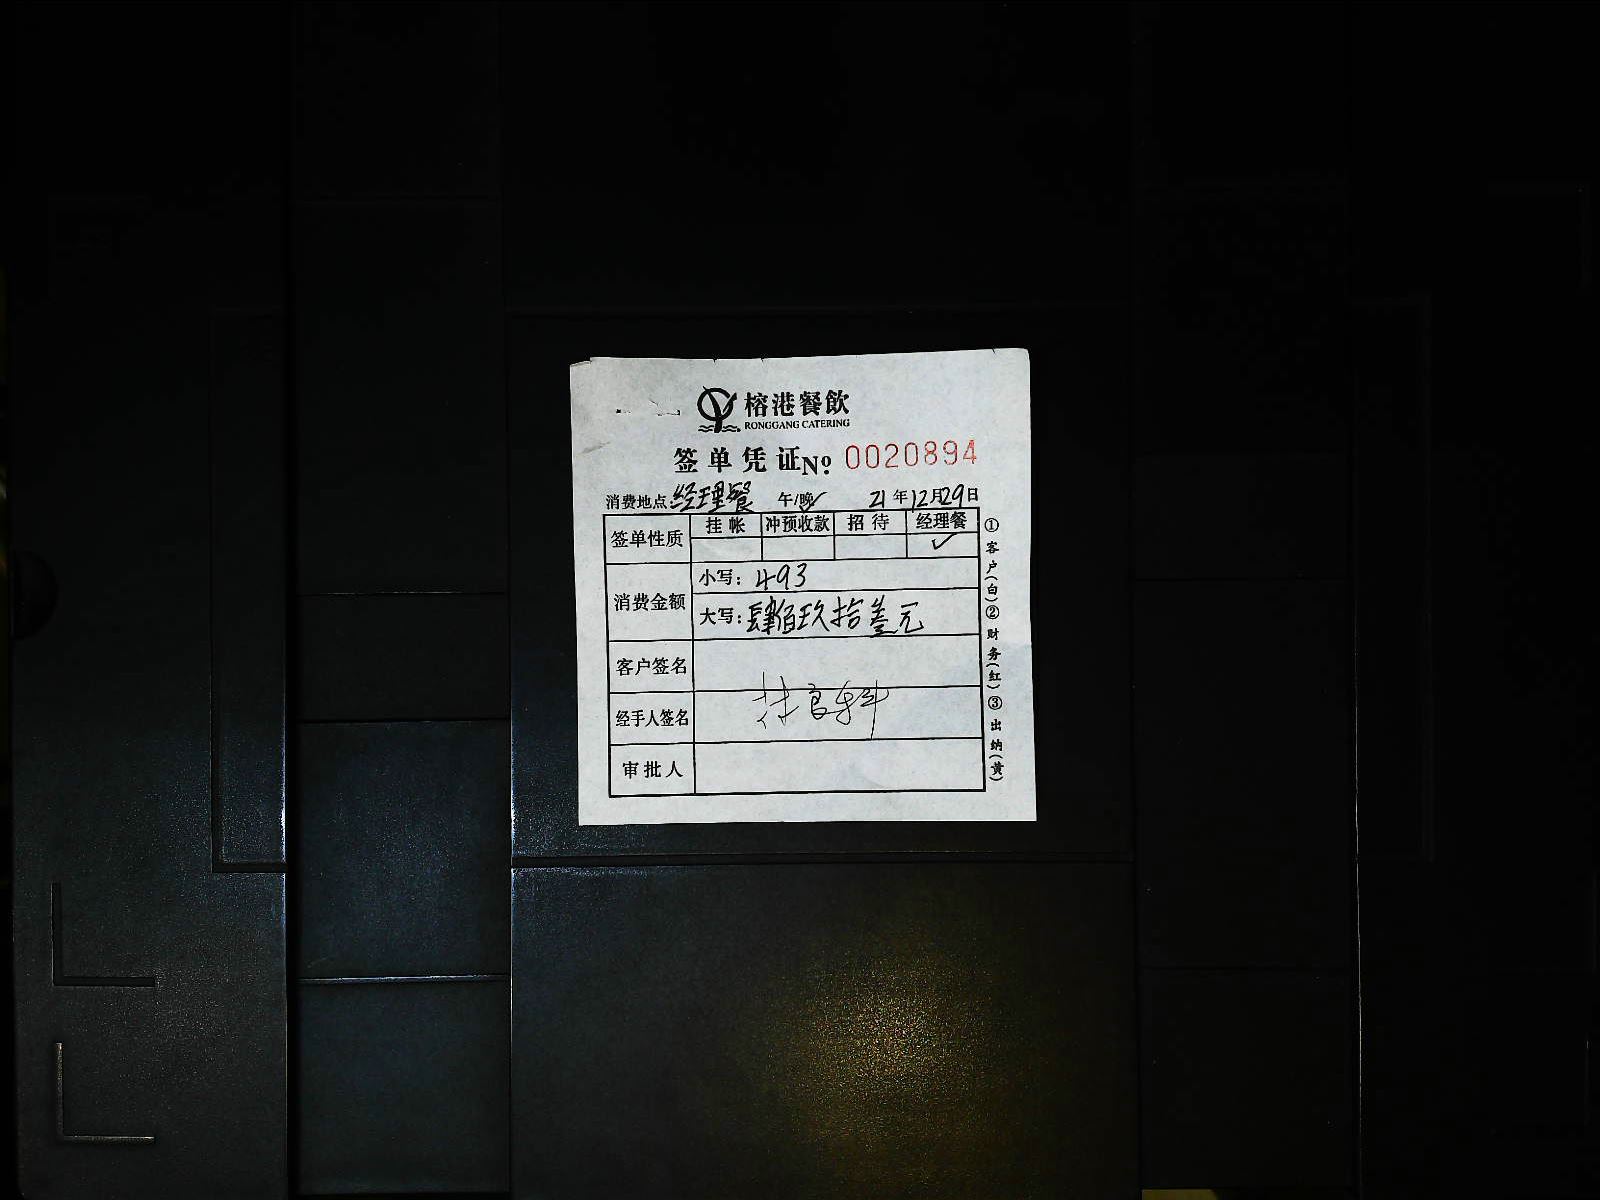 榕港餐飲
RONGGANG CATERING
签单凭证 No 0020894
消费地点:经理餐 午/晚✓ 21年12月29日
签单性质 挂帐 冲预收款 招待 经理餐
✓
消费金额 小写: 493
大写: 肆佰玖拾叁元
客户签名
经手人签名
审批人
①客户(白)②财务(红)③出纳(黄)